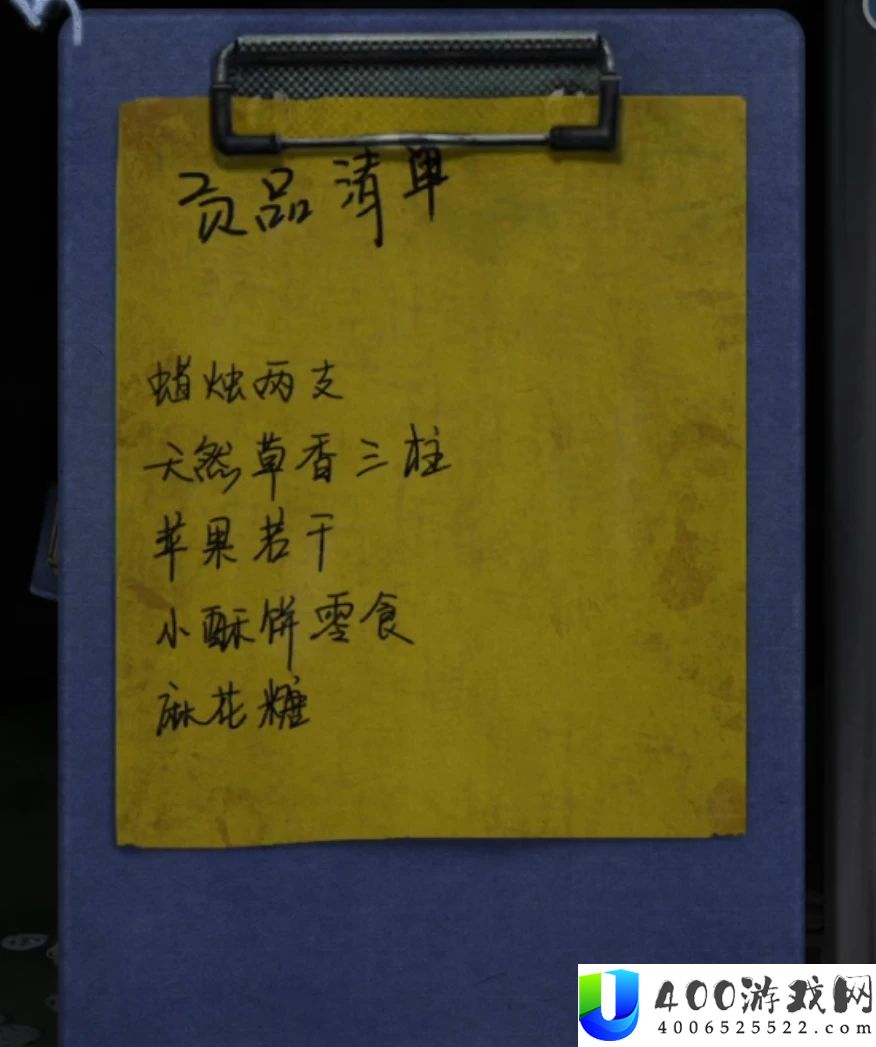 贡品清单
蜡烛两支
天然草香三柱
苹果若干
小酥饼零食
麻花糖
400游戏网
4006525522.com